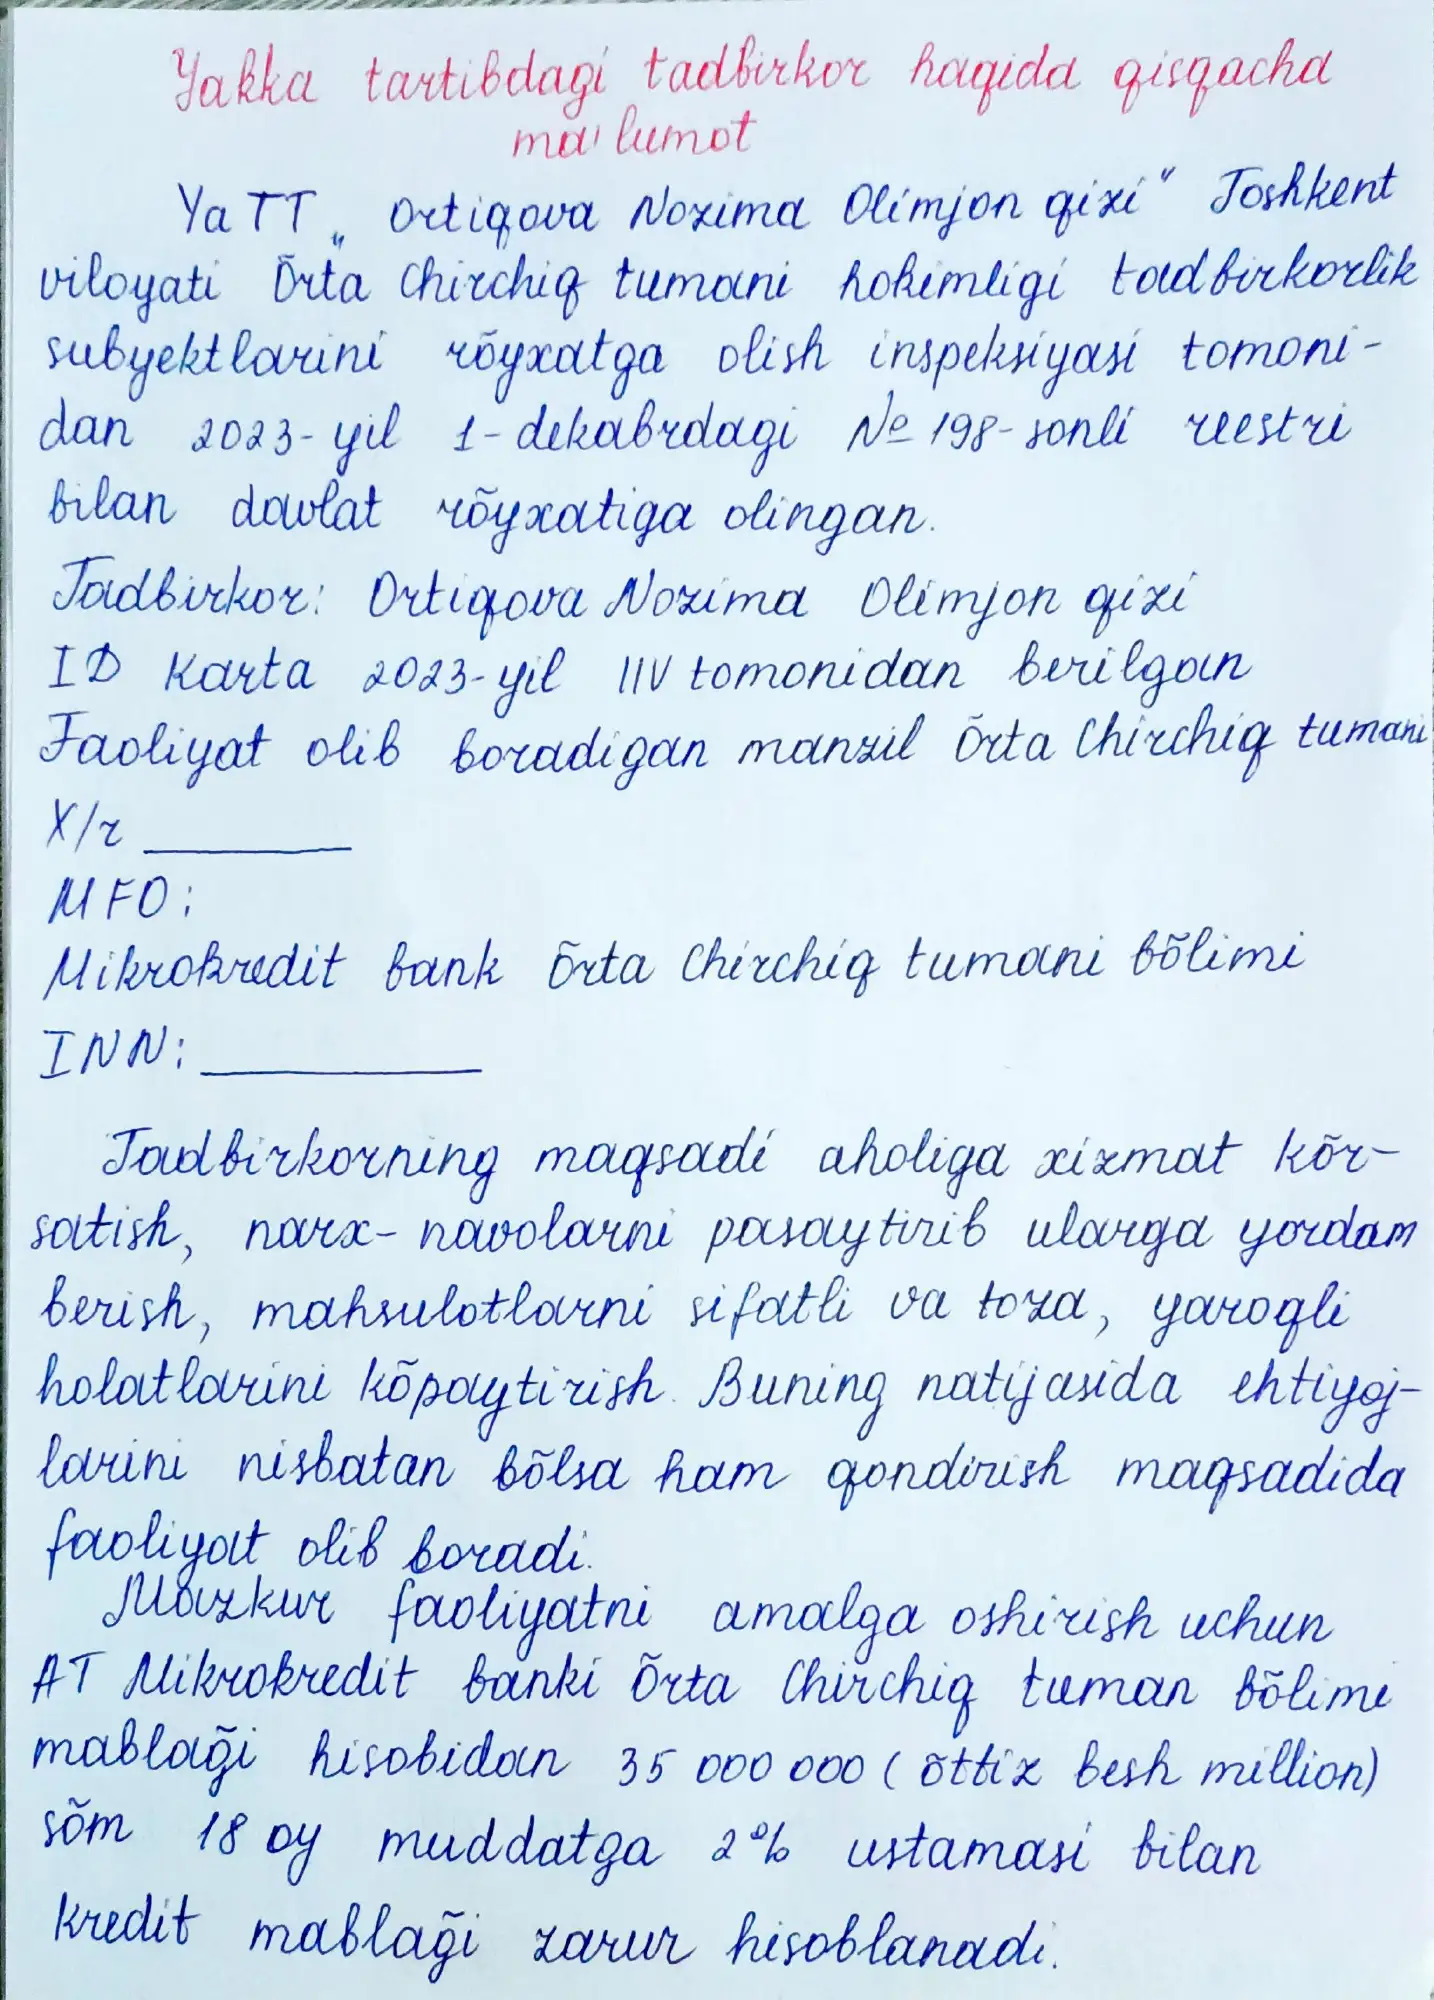 Yakka tartibdagi tadbirkor haqida qisqacha
ma'lumot
YaTT „Ortiqova Nozima Olimjon qizi" Toshkent
viloyati Õrta Chirchiq tumani hokimligi tadbirkorlik
subyektlarini rõyxatga olish inspeksiyasi tomoni-
dan 2023-yil 1-dekabrdagi № 198-sonli reestri
bilan davlat rõyxatiga olingan.
Tadbirkor: Ortiqova Nozima Olimjon qizi
ID Karta 2023-yil IIV tomonidan berilgan
Faoliyat olib boradigan manzil Õrta Chirchiq tumani
X/r ________
MFO:
Mikrokredit bank Õrta Chirchiq tumani bõlimi
INN: ___________
Tadbirkorning maqsadi aholiga xizmat kõr-
satish, narx-navolarni pasaytirib ularga yordam
berish, mahsulotlarni sifatli va toza, yaroqli
holatlarini kõpaytirish. Buning natijasida ehtiyoj-
larini nisbatan bõlsa ham qondirish maqsadida
faoliyat olib boradi.
Mazkur faoliyatni amalga oshirish uchun
AT Mikrokredit banki Õrta Chirchiq tuman bõlimi
mablag̃i hisobidan 35 000 000 (õttiz besh million)
sõm 18 oy muddatga 2% ustamasi bilan
kredit mablag̃i zarur hisoblanadi.